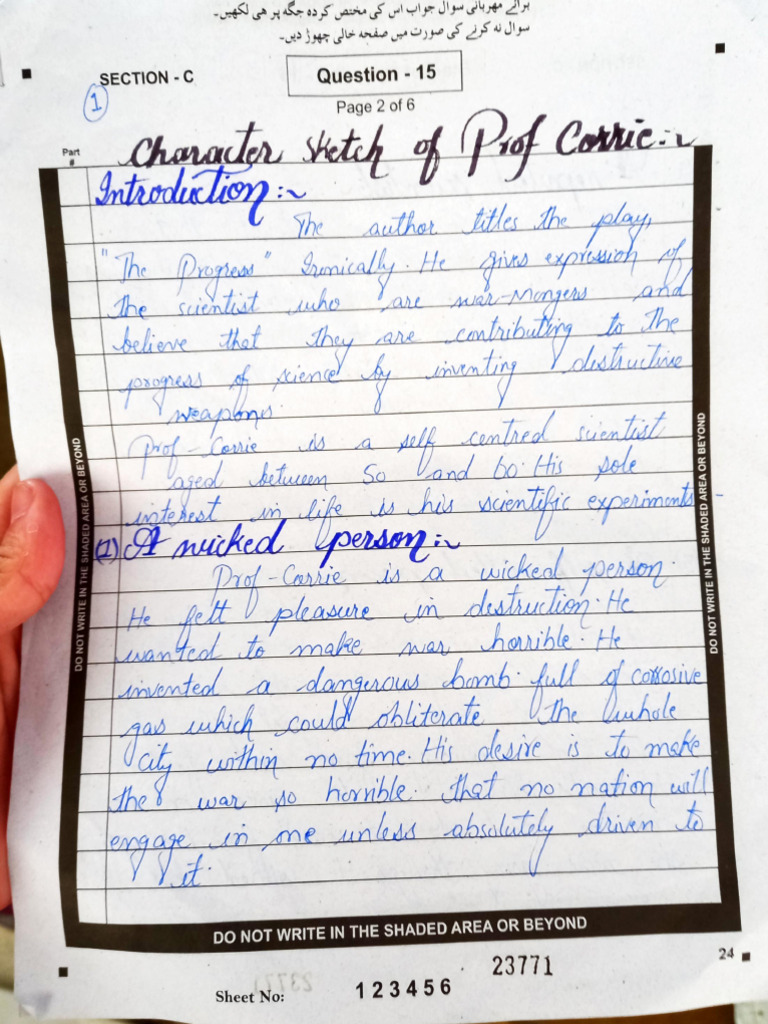 برائے مہربانی سوال جواب اس کی مختص کردہ جگہ پر ھی لکھیں۔
سوال نہ کرنے کی صورت میں صفحہ خالی چھوڑ دیں۔
SECTION - C
Question - 15
1
Page 2 of 6
Part
#
Character sketch of Prof Corrie:~
Introduction:~
The author titles the play,
"The Progress" Ironically. He gives expression of
the scientist who are war-Mongers and
believe that they are contributing to the
progress of science by inventing destructive
weapons.
Prof-Corrie is a self centred scientist
aged between 50 and 60. His sole
interest in life is his scientific experiments
(1) A wicked person:~
Prof-Corrie is a wicked person.
He felt pleasure in destruction. He
wanted to make war horrible. He
invented a dangerous bomb full of corrosive
gas which could obliterate the whole
city within no time. His desire is to make
the war so horrible that no nation will
engage in one unless absolutely driven to
it.
DO NOT WRITE IN THE SHADED AREA OR BEYOND
DO NOT WRITE IN THE SHADED AREA OR BEYOND
DO NOT WRITE IN THE SHADED AREA OR BEYOND
24
23771
Sheet No: 123456